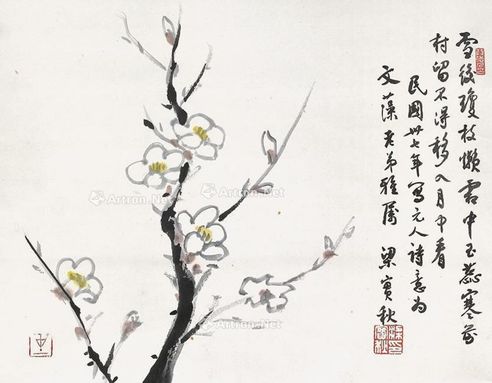 雪後瓊枝嫩霜中玉蕊寒前
村留不得移入月中看
民國卅七年寫元人詩意為
文藻老弟雅屬 梁實秋
Artron.Net
Artron.Net
Artron.Net
Artron.Net